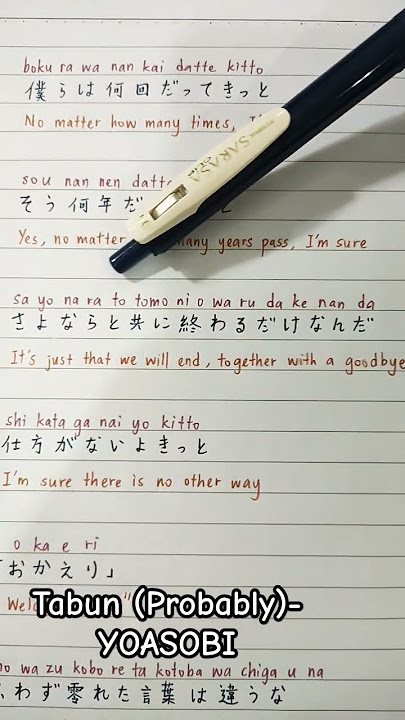 boku ra wa nan kai datte kitto
僕らは何回だってきっと
No matter how many times,
sou nan nen datt
そう何年だ と
Yes, no matter many years pass, I'm sure
SARASA
sa yo na ra to tomo ni o wa ru da ke nan da
さよならと共に終わるだけなんだ
It's just that we will end, together with a goodbye
shi kata ga nai yo kitto
仕方がないよきっと
I'm sure there is no other way
o ka e ri
「おかえり」
Wel
Tabun (Probably)-
YOASOBI
wa zu kobo re ta kotoba wa chiga u na
わず零れた言葉は違うな